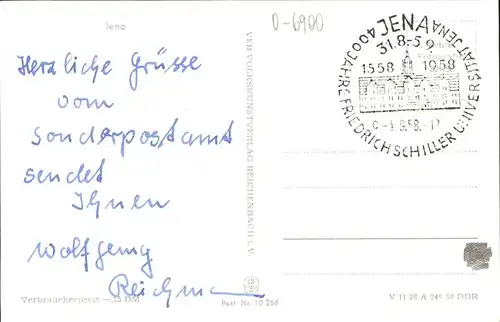 Jena
0-6900
Herzliche Grüsse
vom
Sonderpostamt
sendet
Ihnen
Wolfgang
Verbraucherpreis –,15 DM
VEB VOLKSKUNSTVERLAG REICHENBACH I. V.
Best Nr. 10 256
JENA
31.8.-5.9.
1558 1958
400 JAHRE FRIEDRICH SCHILLER UNIVERSITÄT JENA
V 11 28 A 241 58 DDR